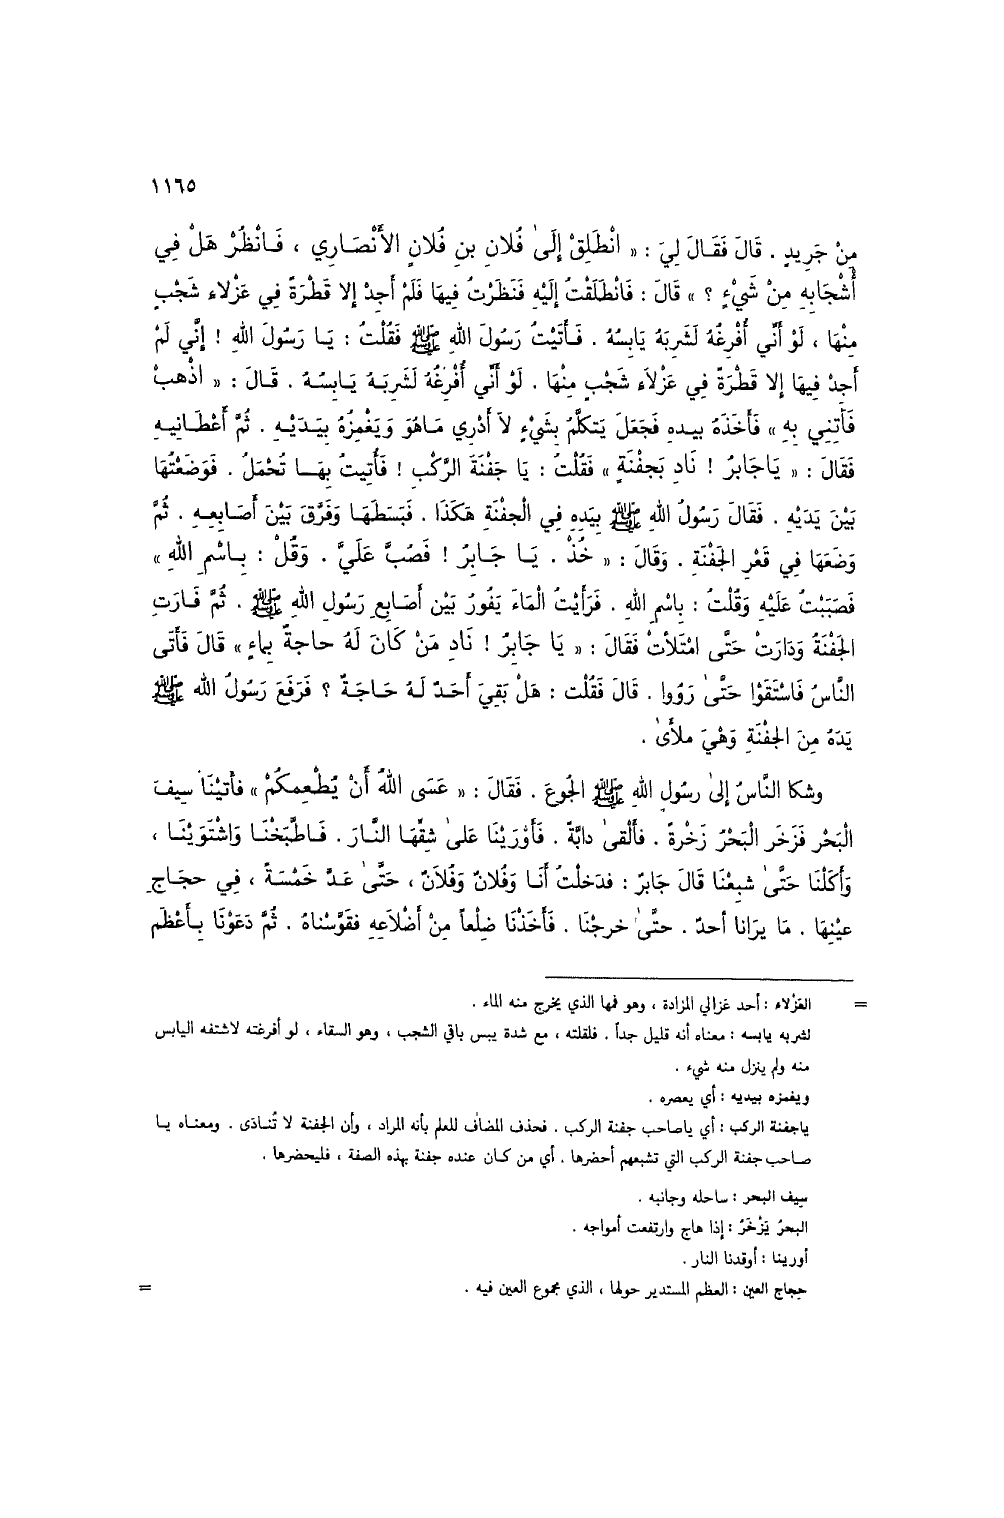 ١١٦٥
مِنْ جَرِيدٍ . قَالَ فَقَالَ لِيَ : « انْطَلِقْ إِلَىٰ فُلَانِ بنِ فُلَانٍ الأَنْصَارِي ، فَانْظُرْ هَلْ فِي
أَشْجَابِهِ مِنْ شَيْءٍ ؟ » قَالَ : فَانْطَلَقْتُ إِلَيْهِ فَنَظَرْتُ فِيهَا فَلَمْ أَجِدْ إلا قَطْرَةً فِي عَزْلاء شَجْبٍ
مِنْهَا ، لَوْ أنّي أُفْرِغُهُ لَشَرِبَهُ يَابِسُهُ . فَأَتَيْتُ رَسُولَ اللهِ ﷺ فَقُلْتُ : يَا رَسُولَ اللهِ ! إنَّي لَمْ
أَجِدْ فِيهَا إلا قَطْرَةً فِي عَزْلاَءِ شَجْبٍ مِنْهَا . لَوْ أَنّي أُفْرِغُهُ لَشَرِبَهُ يَابِسُهُ . قَالَ : « اذْهبْ
فَأْتِنِي بِهِ » فَأَخَذَهُ بيدِهِ فَجَعَلَ يَتكلَّمُ بِشَيْءٍ لاَ أَدْرِي مَاهُوَ وَيَغْمِزُهُ بِيَدَيْهِ . ثُمَّ أَعْطَانِيهِ
فَقَالَ : « يَاجَابرُ ! نَادِ بَجفْنَةٍ » فَقُلْتُ : يَا جَفْنَةَ الرَّكْبِ ! فَأُتِيتُ بِهَا تُحْمَلُ . فَوَضَعْتُهَا
بَيْنَ يَدَيْهِ . فَقَالَ رَسُولُ اللهِ ﷺ بِيَدِهِ فِي الْجفْنَةِ هَكَذَا . فَبَسَطَهَا وَفَرَّقَ بَيْنَ أَصَابِعِهِ . ثُمَّ
وَضَعَهَا فِي قَعْرِ الجَفْنَةِ . وَقَالَ : « خُذْ . يَا جَابِرُ ! فَصُبَّ عَلَيَّ . وَقُلْ : بِاسْمِ اللهِ »
فَصَبَبْتُ عَلَيْهِ وَقُلْتُ : بِاسْمِ اللهِ . فَرَأَيْتُ الْمَاءَ يَفُورُ بَيْنِ أَصَابِعِ رَسُولِ اللهِ ﷺ . ثُمَّ فَارَتِ
الجَفْنَةُ وَدَارَتْ حَتَّى امْتَلأتْ فَقَالَ : « يَا جَابِرُ ! نَادِ مَنْ كَانَ لَهُ حاجةٌ بماءٍ » قَالَ فَأَتَى
النَّاسُ فَاسْتَقَوْا حَتَّىٰ رَوُوا . قَالَ فَقُلْت : هَلْ بَقِيَ أَحَدٌ لَهُ حَاجَةٌ ؟ فَرَفَعَ رَسُولُ اللهِ ﷺ
يَدَهُ مِنَ الجفْنَةِ وَهْيَ ملأَىٰ .
وشكا النَّاسُ إلىٰ رسُولِ اللهِ ﷺ الجُوعَ . فَقَالَ : « عَسَى اللهُ أَنْ يُطْعِمكُمْ » فأتَيْنَا سِيفَ
الْبَحْرِ فَزَخَرَ الْبَحْرُ زَخْرةً . فأَلْقىٰ دابَّةً . فَأَوْرَيْنَا عَلىٰ شِقِّهَا النَّارَ . فَاطَّبَخْنَا وَاشْتَوَيْنَا ،
وَأَكلْنَا حَتَّىٰ شبِعْنَا قَالَ جَابرٌ : فدَخلْتُ أَنَا وَفُلانٌ وَفُلاَنٌ ، حَتَّىٰ عَدَّ خَمْسَةً ، فِي حجَاجِ
عيْنِهَا . مَا يرَانا أحدٌ . حتَّىٰ خرجْنَا . فَأَخَذْنَا ضِلْعاً مِنْ أَضْلاَعِهِ فقَوَّسْناهُ . ثُمَّ دَعَوْنَا بِأَعْظَمِ
= العَزْلاء : أحد عَزالي المزادة ، وهو فمها الذي يخرج منه الماء .
لشربه يابسه : معناه أنه قليل جداً . فلقلته ، مع شدة يبس باقي الشجب ، وهو السقاء ، لو أفرغته لاشتفه اليابس
منه ولم ينزل منه شيء .
ويغمزه بيديه : أي يعصره .
ياجفنة الركب : أي ياصاحب جفنة الركب . فحذف المضاف للعلم بأنه المراد ، وأن الجفنة لا تُنادَى . ومعناه يا
صاحب جفنة الركب التي تشبعهم أحضرها . أي من كان عنده جفنة بهذه الصفة ، فليحضرها .
سِيف البحر : ساحله وجانبه .
البحرُ يَزْخَرُ : إذا هاج وارتفعت أمواجه .
أورينا : أوقدنا النار .
حِجاج العين : العظم المستدير حولها ، الذي مجموع العين فيه . =